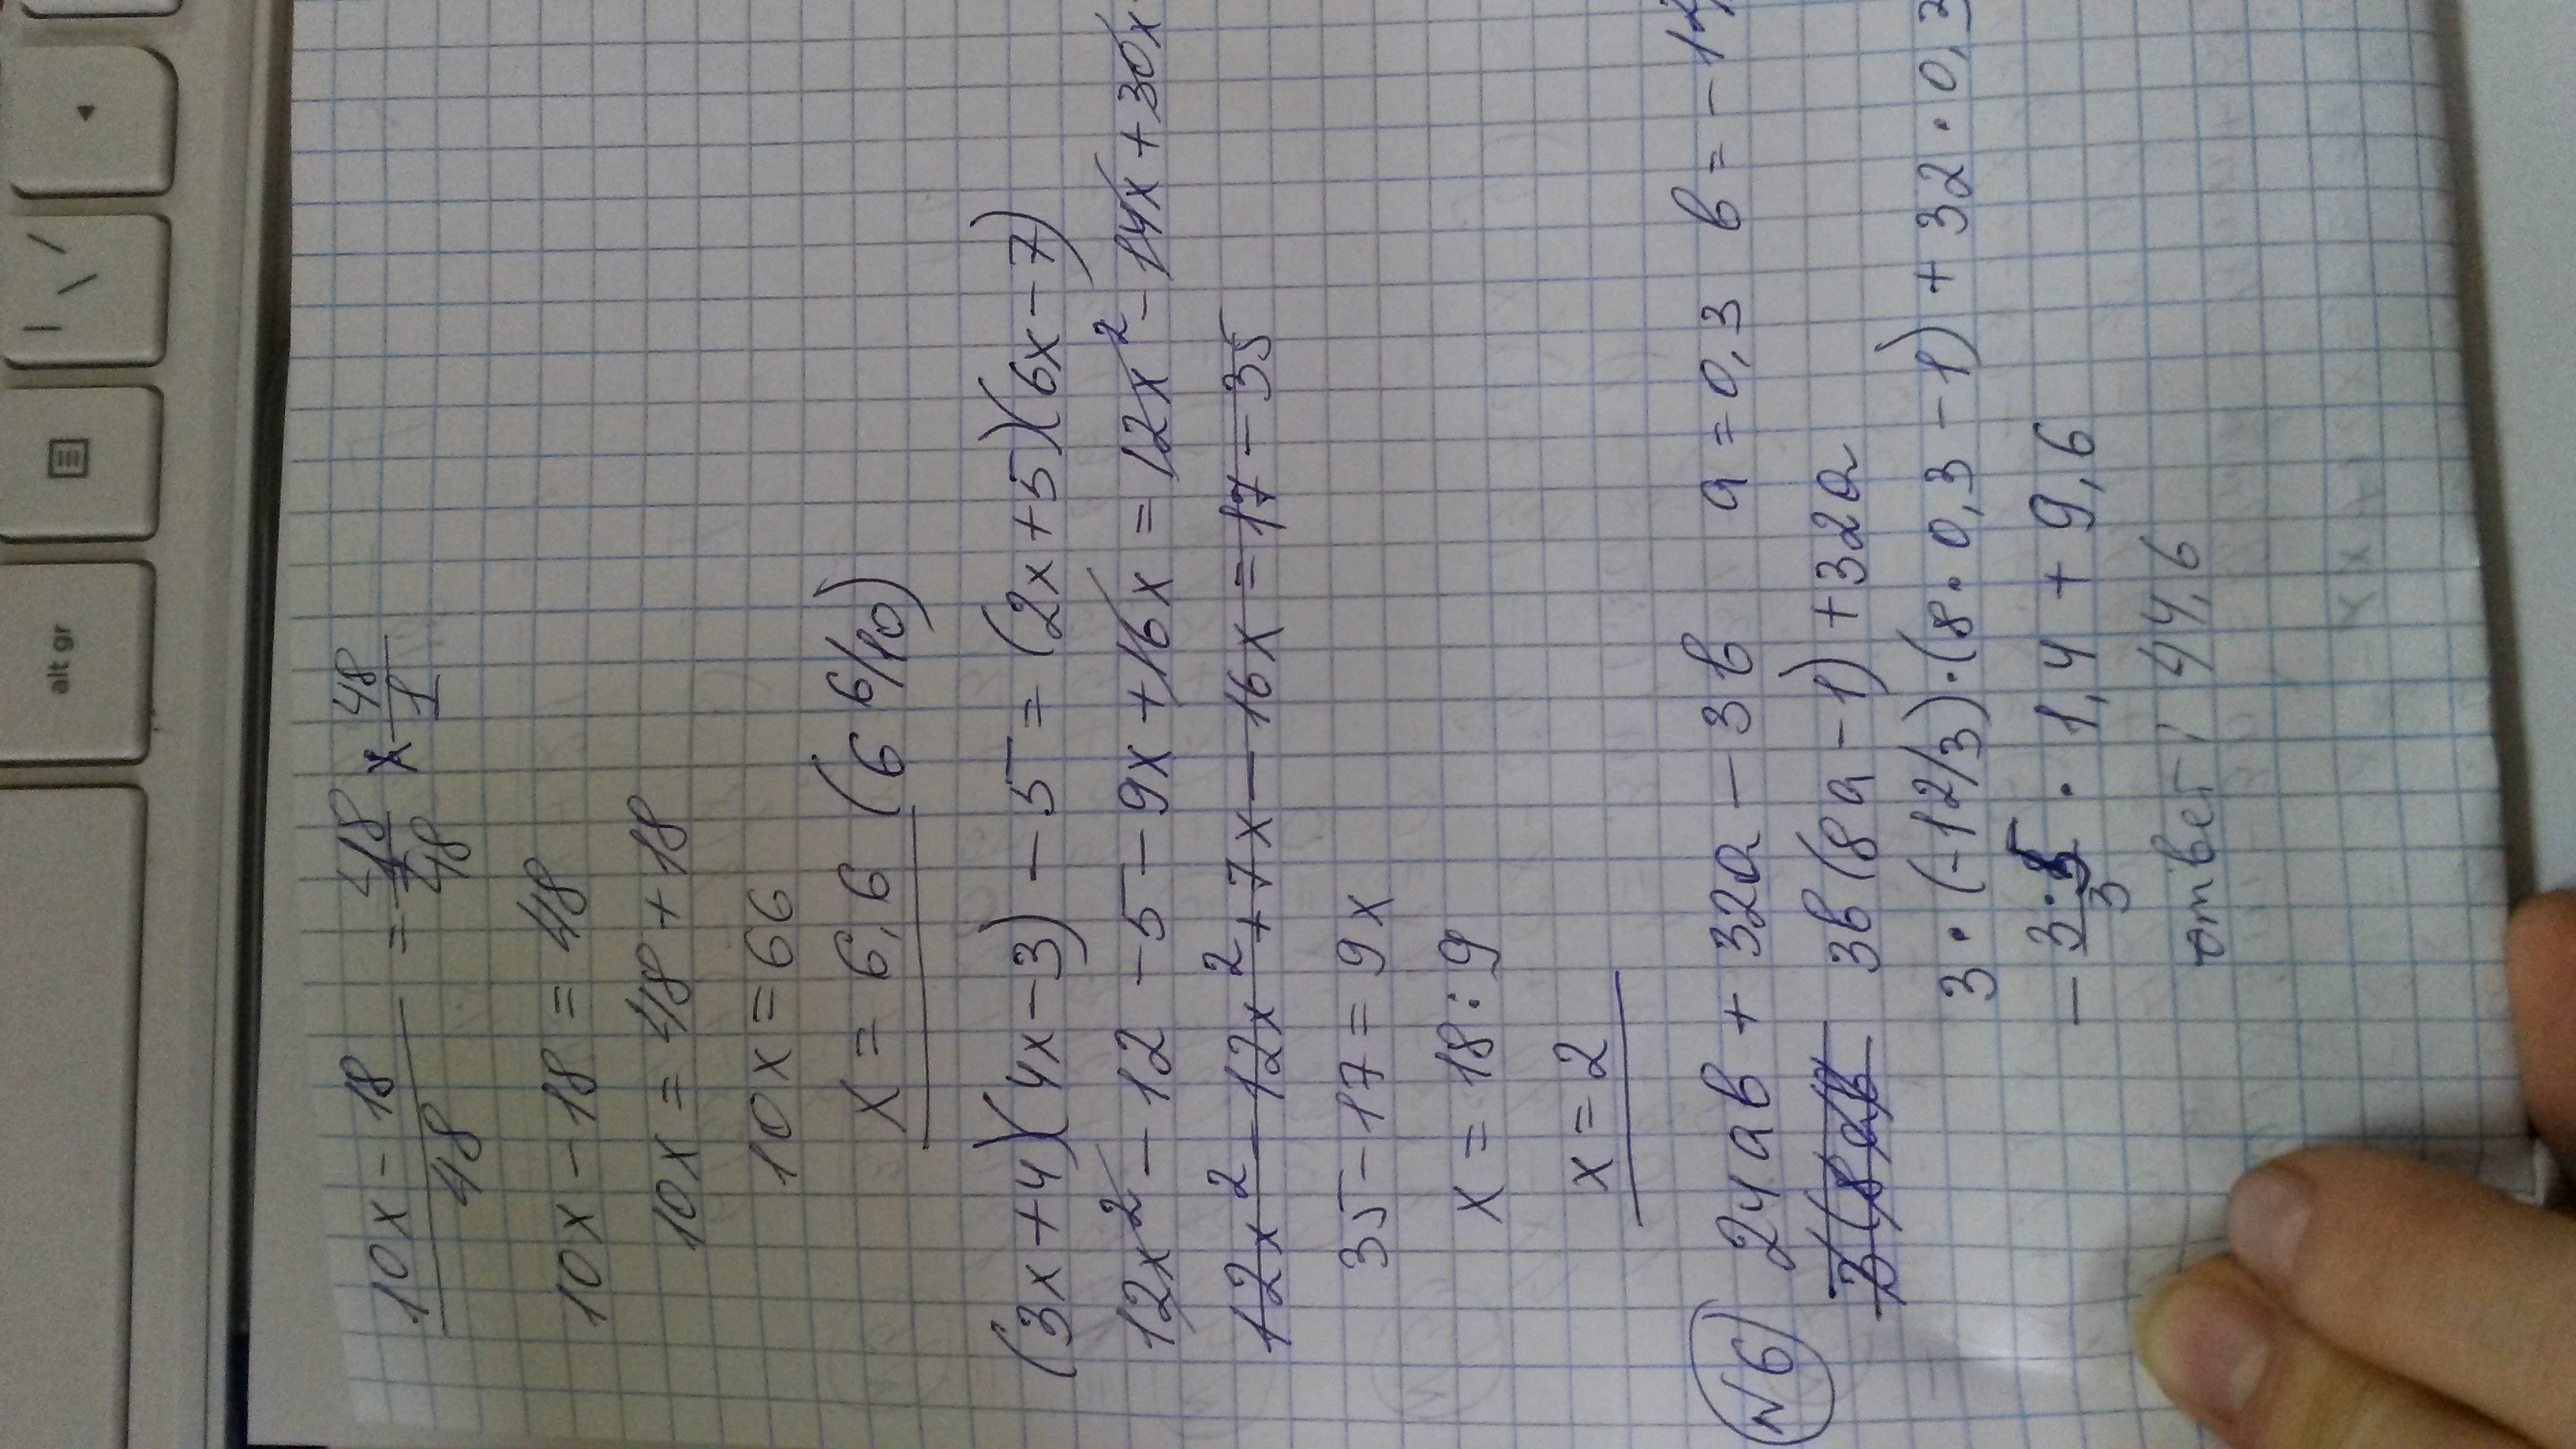 alt gr
| \ /
(10x - 18)/48 = 48/48 x 48/1
10x - 18 = 48
10x = 48 + 18
10x = 66
x = 6,6 (6 6/10)
(3x+4)(4x-3) - 5 = (2x+5)(6x-7)
12x² - 12 - 5 - 9x + 16x = 12x² - 14x + 30x
12x² - 12x² + 7x - 16x = 17 - 35
35 - 17 = 9x
x = 18 : 9
x = 2
N6 24ab + 32a - 3b a = 0,3 b = -12/
3(8ab 3b(8a - 1) + 32a
3 · (-12/3) · (8 · 0,3 - 1) + 32 · 0,3
- 3·5/3 · 1,4 + 9,6
ответ: 44,6